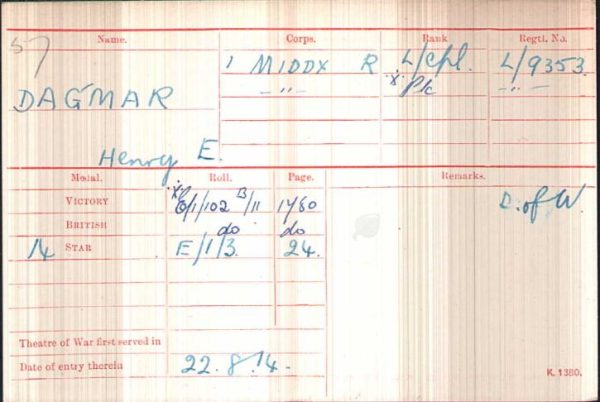 57
Name. Corps. Rank Regtl. No.
1 MIDDX R L/Cpl. L/9353.
DAGMAR -"- X Pte -"-
Henry E.
Medal. Roll. Page. Remarks.
VICTORY E/1/102 B/11 1780 D. of W.
BRITISH do do
14 STAR E/1/3. 24.
Theatre of War first served in
Date of entry therein 22.8.14.
K. 1380.